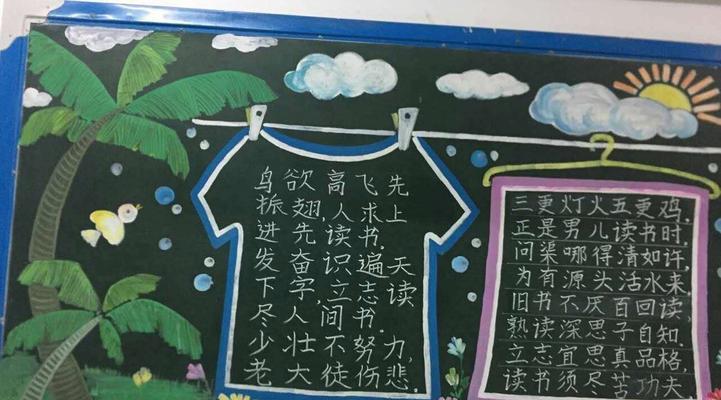 鸟欲高飞先
振翅,人求上
进先读书.
发奋识遍天
下字,立志读
尽人间书.
少壮不努力,
老大徒伤悲.
三更灯火五更鸡,
正是男儿读书时.
问渠哪得清如许,
为有源头活水来.
旧书不厌百回读,
熟读深思子自知.
立志宜思真品格,
读书须尽苦功夫